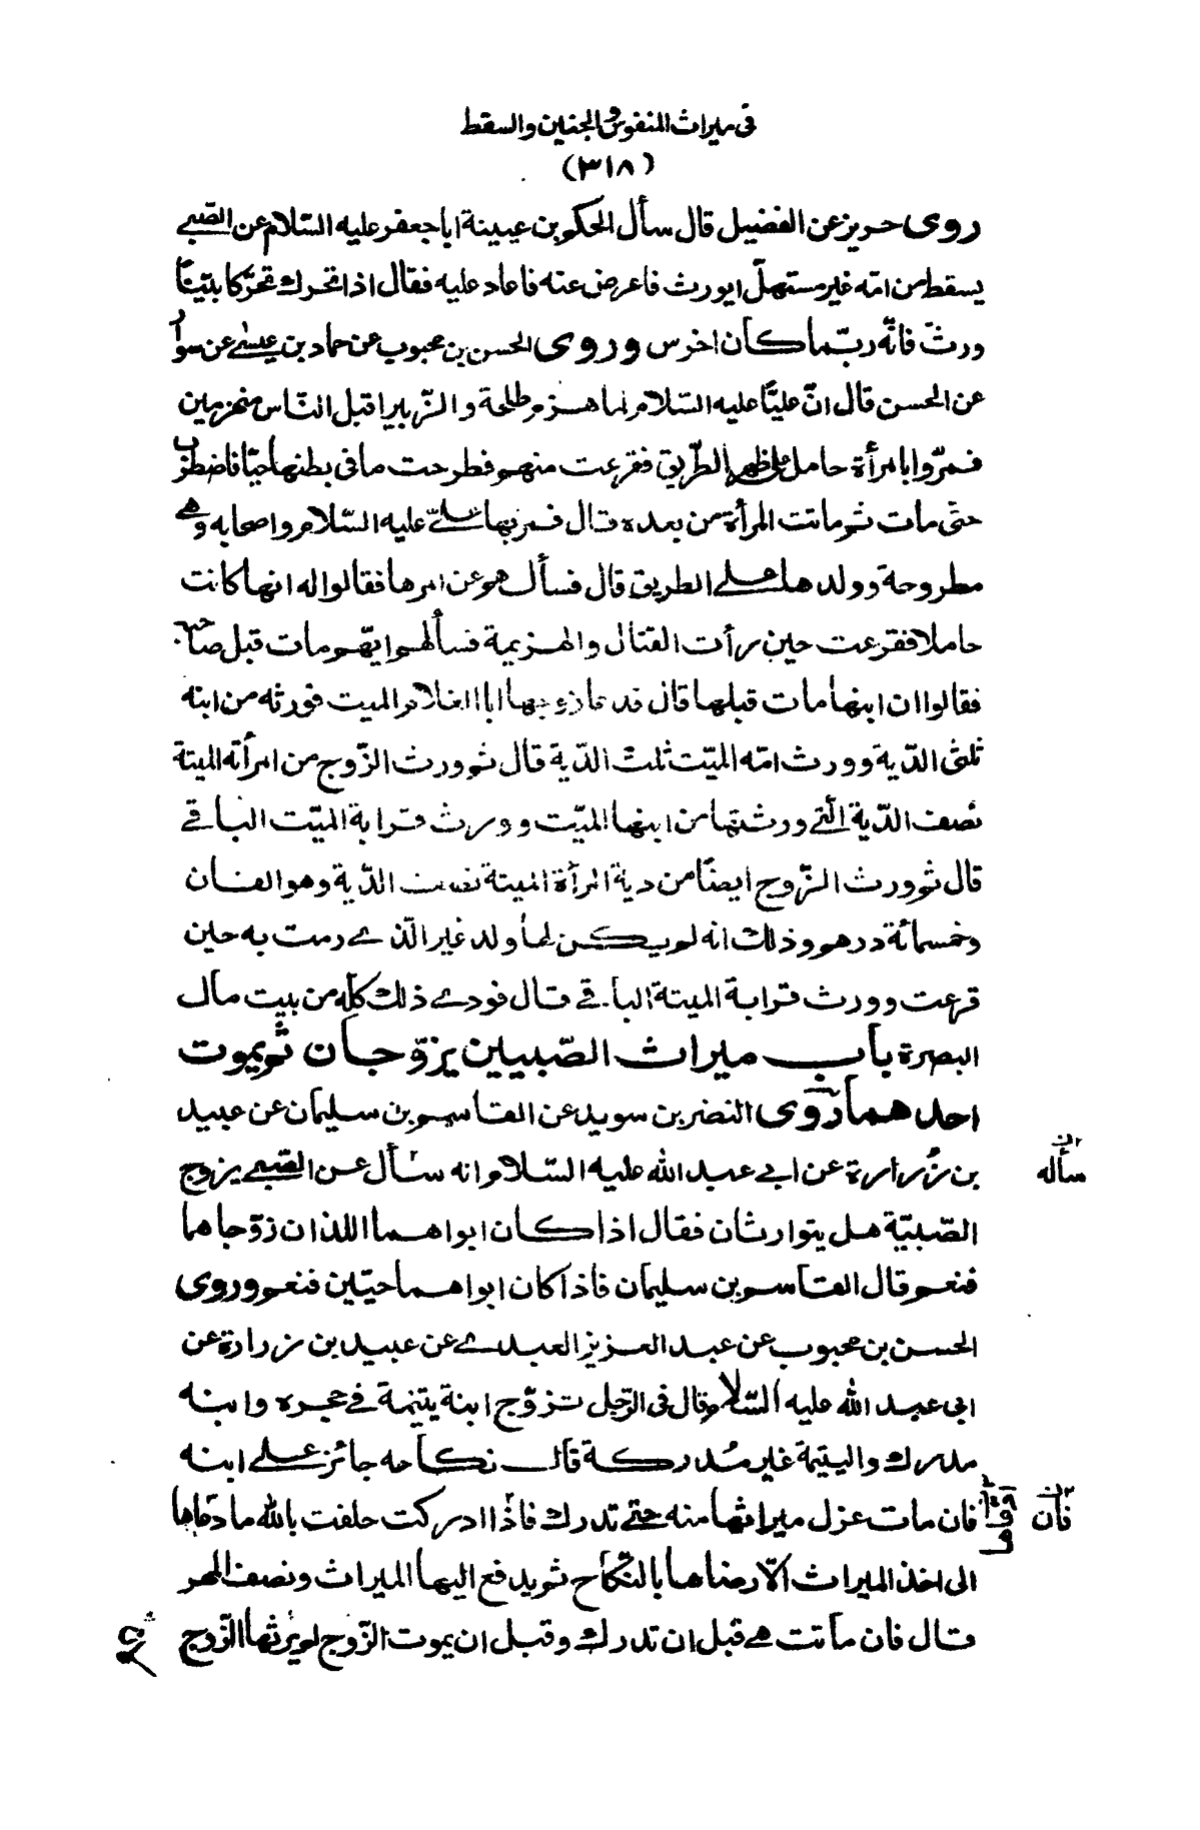 فى ميراث المنفوس والجنين والسقط
(٣١٨)
روى حريز عن الفضيل قال سأل الحكم بن عيينة ابا جعفر عليه السّلام عن الصّبى
يسقط من امّه غير مستهلّ ايورث فاعرض عنه فاعاد عليه فقال اذا تحرك تحرّكا بيّنًا
ورث فانّه ربّما كان اخرس وروى الحسن بن محبوب عن حماد بن عيسى عن سوار
عن الحسن قال انّ عليًّا عليه السّلام لما هزم طلحة والزّبير اقبل النّاس منهزمين
فمرّوا بامرأة حامل على ظهر الطّريق ففزعت منهم فطرحت ما فى بطنها حيّا فاضطرب
حتى مات ثم ماتت المرأة من بعده قال فمر بها علىّ عليه السّلام واصحابه وهى
مطروحة وولدها على الطريق قال فسأل هم عن امرها فقالوا له انها كانت
حاملا ففزعت حين رأت القتال والهزيمة فسألهم ايّهم مات قبل صاحبه
فقالوا ان ابنها مات قبلها قال فدعا زوجها ابا الغلام الميت فورثه من ابنه
ثلثى الدّية وورث امّه الميّت ثلث الدّية قال ثم ورث الزّوج من امرأته الميتة
نصف الدّية الّتى ورثتها من ابنها الميّت وورث قرابة الميّت الباقى
قال ثم ورث الزّوج ايضًا من دية المرأة الميتة نصف الدّية وهو الفان
وخمسمائة درهم وذلك انه لم يكن لها ولد غير الّذى رمت به حين
فزعت وورث قرابة الميتة الباقى قال فودى ذلك كلّه من بيت مال
البصرة باب ميراث الصّبيين يزوّجان ثم يموت
احدهما روى النضر بن سويد عن القاسم بن سليمان عن عبيد
بن زُرارة عن ابى عبد الله عليه السّلام انه سأل عن الصّبى يزوج
سأله
الصّبيّة هل يتوارثان فقال اذا كان ابواهما اللذان زوّجاهما
فنعم قال القاسم بن سليمان فاذا كان ابواهما حيّين فنعم وروى
الحسن بن محبوب عن عبد العزيز العبدى عن عبيد بن زرارة عن
ابى عبد الله عليه السّلام قال فى الرّجل تزوّج ابنة يتيمة فى حجره وابنه
مدرك واليتيمة غير مُدركة قال نكاحه جائز على ابنه
فان مات عزل ميراثها منه حتى تدرك فاذا ادركت حلفت بالله ما دعاها
فان
الى اخذ الميراث الّا رضاها بالنّكاح ثم يدفع اليها الميراث ونصف المهر
قال فان ماتت هى قبل ان تدرك وقبل ان يموت الزّوج لم يرثها الزّوج